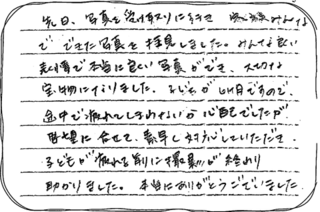 先日、写真を受け取りに行き 家族みんな
で できた写真を 拝見しました。みんな良い
表情で本当に良い写真ができ、大切な
宝物になりました。子どもが 4ヶ月ですので、
途中で疲れてしまわないか心配でしたが
希望に合せて、素早し対応していただき
子どもが疲れる前に撮影が終わり
助かりました。本当にありがとうございました。